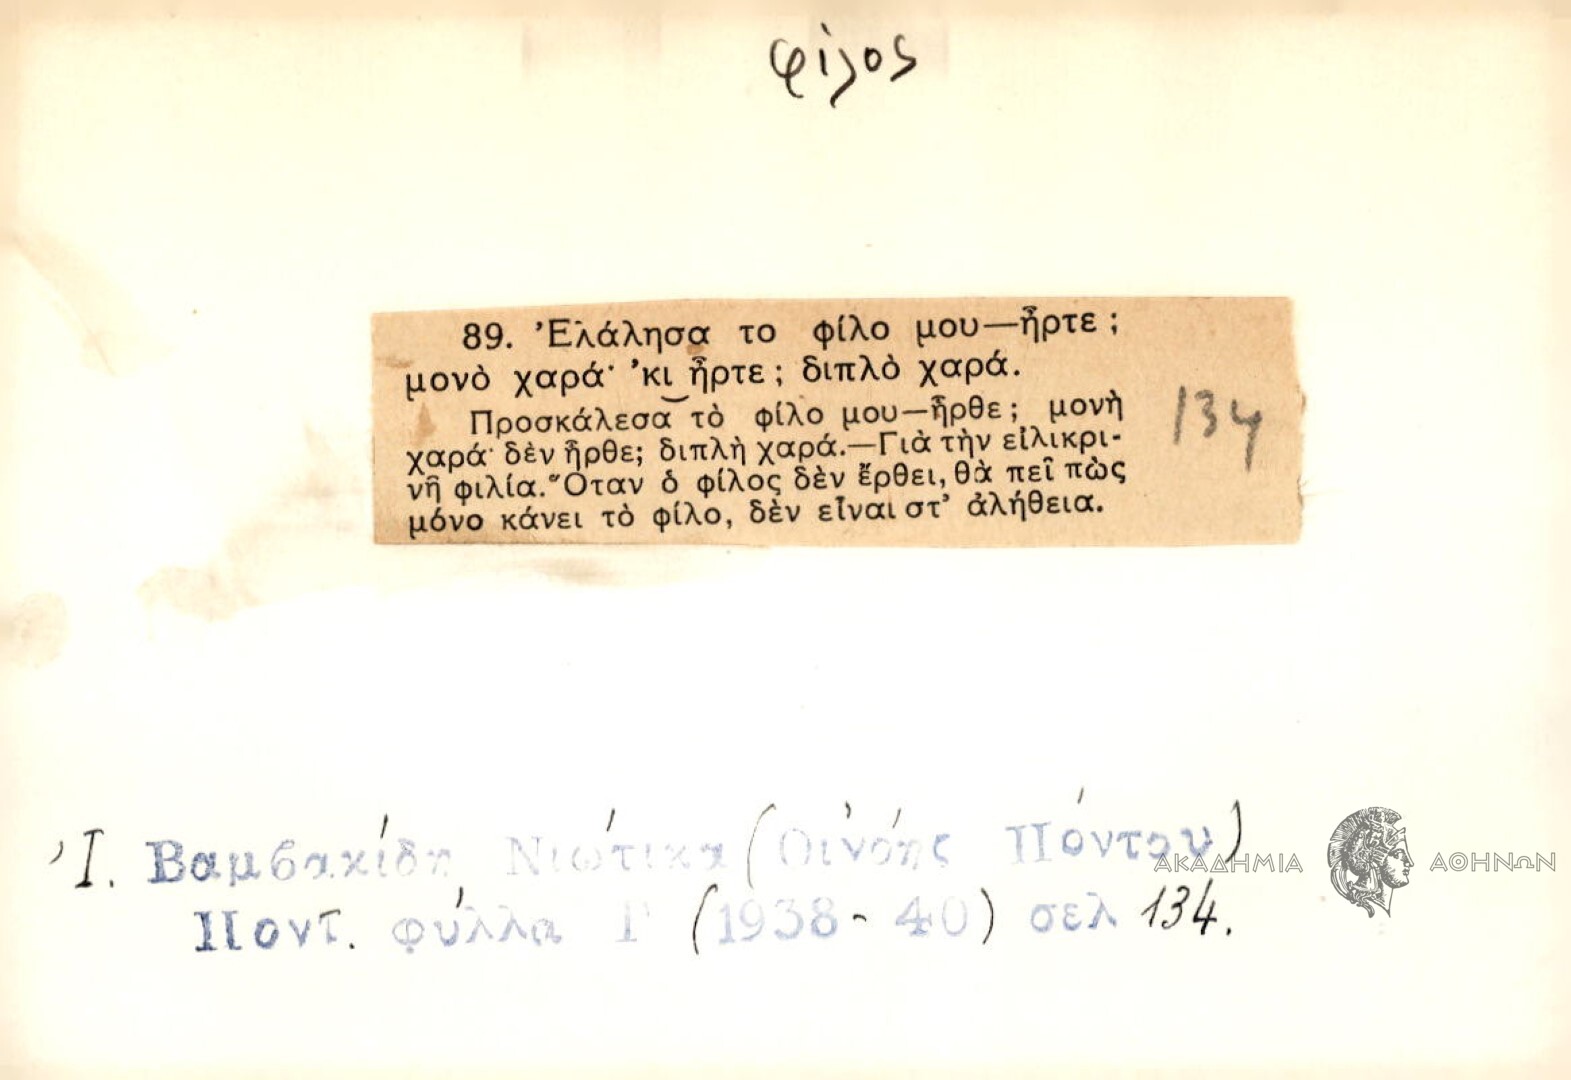 φίλος
89. Ἐλάλησα το φίλο μου—ἦρτε ;
μονὸ χαρά· ’κι ἦρτε ; διπλὸ χαρά.
Προσκάλεσα τὸ φίλο μου—ἦρθε ; μονὴ
χαρά· δὲν ἦρθε; διπλὴ χαρά.—Γιὰ τὴν εἰλικρι-
νῆ φιλία. Ὅταν ὁ φίλος δὲν ἔρθει, θὰ πεῖ πὼς
μόνο κάνει τὸ φίλο, δὲν εἶναι στ’ ἀλήθεια.
134
Ἰ. Βαμβακίδη Νιώτικα (Οἰνόης Πόντου)
Ποντ. φύλλα Γ (1938-40) σελ 134.
ΑΚΑΔΗΜΙΑ ΑΘΗΝΩΝ